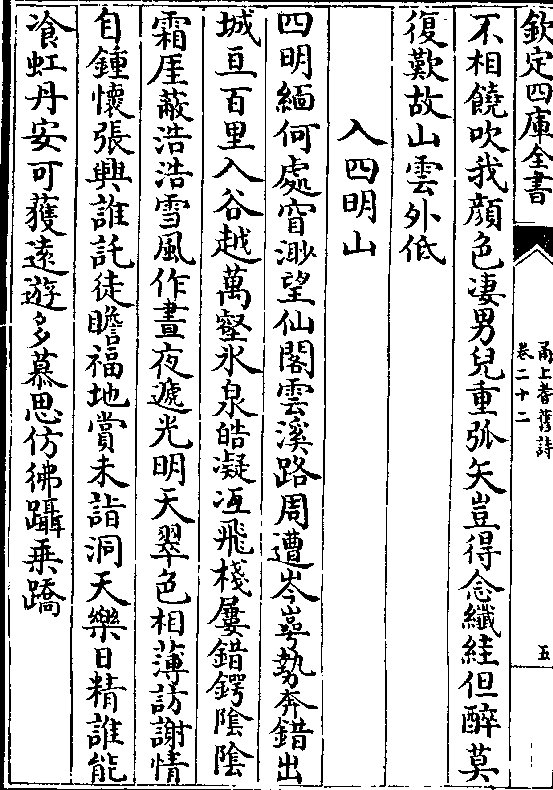 欽定四庫全書
甬上耆舊詩
卷二十二
五
不相饒吹我顔色凄男兒重弧矢豈得念纖絓但醉莫
復歎故山雲外低
入四明山
四明緬何處窅渺望仙閣雲溪路周遭岑崿勢奔錯出
城亘百里入谷越萬壑氷泉皓凝冱飛棧屢錯鍔隂隂
霜厓蔽浩浩雪風作晝夜遞光明天翠色相薄訪謝情
自鍾懷張興誰託徒瞻福地賞未詣洞天樂日精誰能
飡虹丹安可獲遠遊多慕思仿彿躡乗蹻